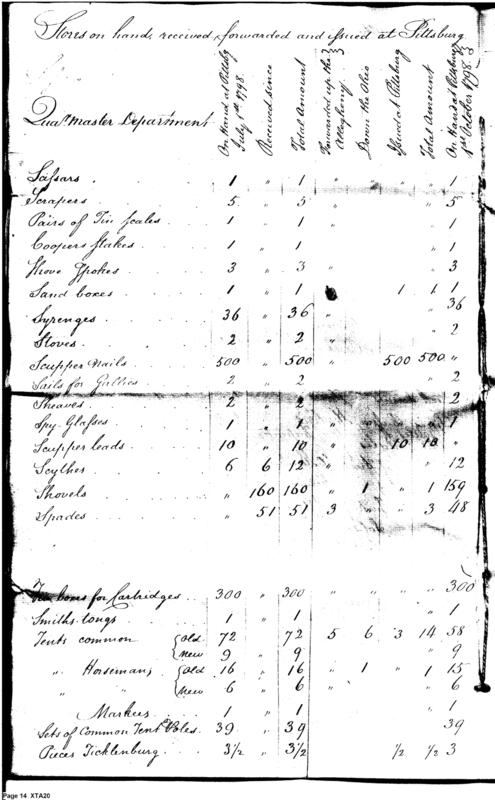 Stores on hand, received, forwarded and Issued at Pittsburg
Quarmaster Department
On Hand at Pittsbg July 1st 1798.
Received since
Total Amount
Forwarded up the Allegheny
Down the Ohio
Issued at Pittsburg
Total Amount
On Hand at Pittsburg 1st October 1798.
1 " 1 " " " " 1
Scrapers 5 " 5 " " 5
Pairs of Tin Scales 1 " 1 " " 1
Coopers Stakes 1 " 1 " 1
Spokes 3 " 3 " 3
Sand boxes 1 " 1 1 1 1
Syrenges 36 " 36 " " 36
Stoves 2 " 2 " " 2
Scupper Nails 500 " 500 " 500 500 "
Sails for Gallies 2 " 2 " 2
Sheaves 2 " 2 " 2
Spy Glasses 1 " 1 " 1
Scupper leads 10 " 10 " 10 10 "
Scythes 6 6 12 " " 12
Shovels " 160 160 " 1 " 1 159
Spades " 51 51 3 " " 3 48
boxes for Cartridges 300 " 300 " " " " 300
Smiths tongs 1 " 1 " 1
Tents common { old 72 72 5 6 3 14 58
{ new 9 " 9 " 9
" Horsemans { old 16 " 16 " 1 1 15
" " { new 6 " 6 " 6
Markees 1 " 1 " 1
Sets of Common Tent Poles 39 " 39 39
Pieces Ticklenburg 3½ " 3½ ½ ½ 3
Page 14 XTA20